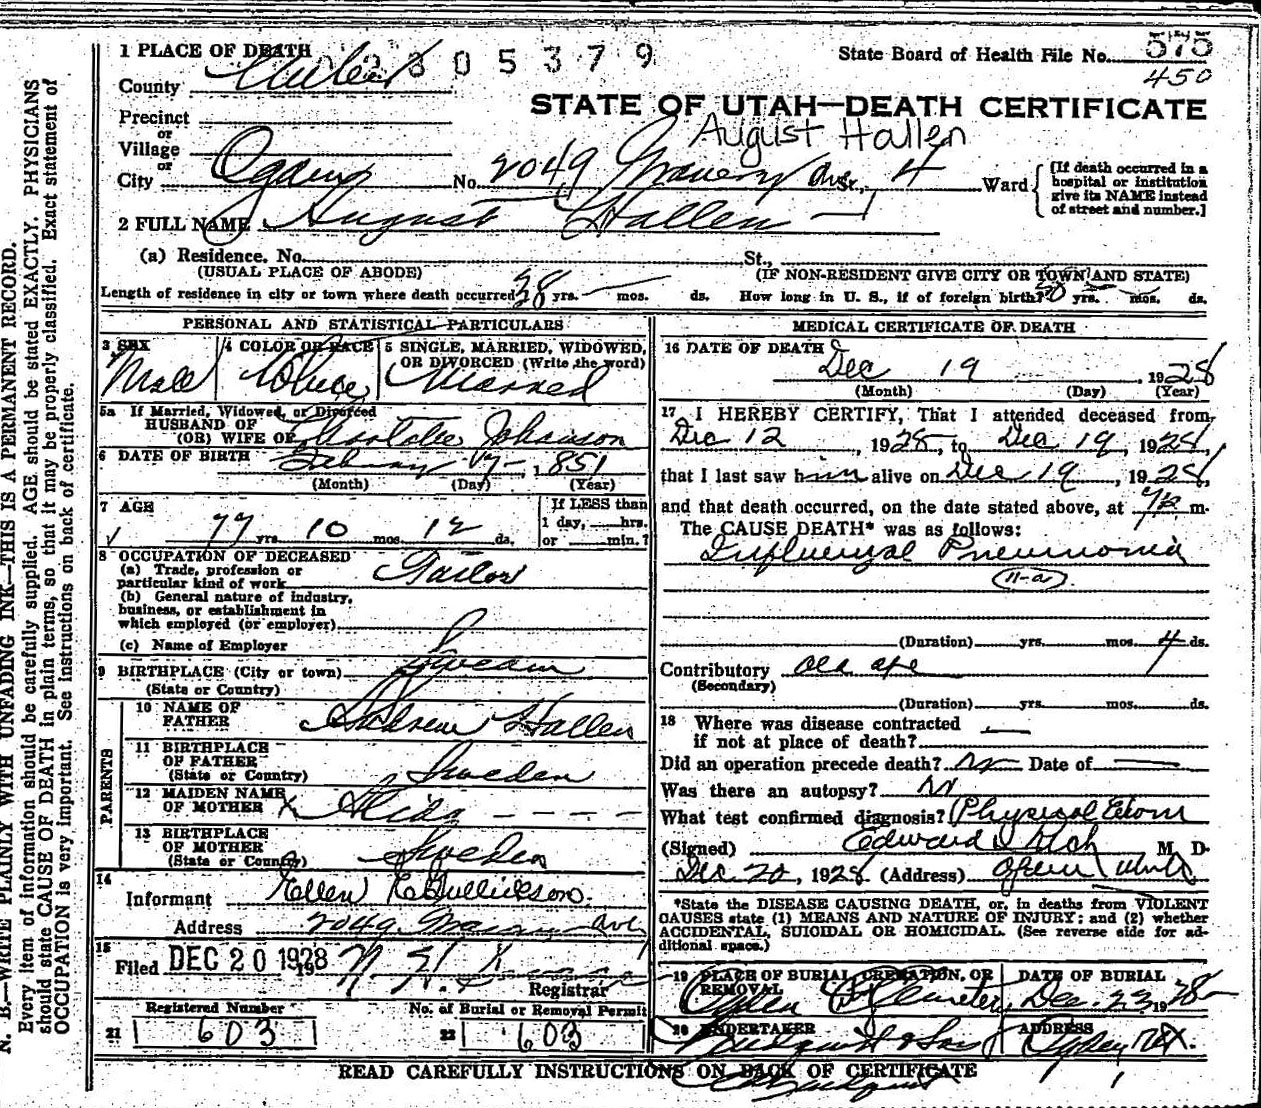 N. B.—WRITE PLAINLY WITH UNFADING INK—THIS IS A PERMANENT RECORD.
Every item of information should be carefully supplied. AGE should be stated EXACTLY. PHYSICIANS
should state CAUSE OF DEATH in plain terms, so that it may be properly classified. Exact statement of
OCCUPATION is very important. See instructions on back of certificate.
1 PLACE OF DEATH
05379
State Board of Health File No. 575
450
County
STATE OF UTAH—DEATH CERTIFICATE
August Hallen
Precinct
or
Village
or
City Ogden No. 2049 Ave St., 4 Ward
[If death occurred in a
hospital or institution
give its NAME instead
of street and number.]
2 FULL NAME August Hallen
(a) Residence. No. St.,
(USUAL PLACE OF ABODE) (IF NON-RESIDENT GIVE CITY OR TOWN AND STATE)
Length of residence in city or town where death occurred 38 yrs. mos. ds. How long in U. S., if of foreign birth? yrs. mos. ds.
PERSONAL AND STATISTICAL PARTICULARS
3 SEX 4 COLOR OR RACE 5 SINGLE, MARRIED, WIDOWED,
OR DIVORCED (Write the word)
Male White Married
5a If Married, Widowed, or Divorced
HUSBAND OF
(OR) WIFE OF Johanson
6 DATE OF BIRTH February 1851
(Month) (Day) (Year)
7 AGE
If LESS than
1 day, hrs.
or min.?
77 yrs. 10 mos. 12 ds.
8 OCCUPATION OF DECEASED
(a) Trade, profession or
particular kind of work Tailor
(b) General nature of industry,
business, or establishment in
which employed (or employer)
(c) Name of Employer
9 BIRTHPLACE (City or town) Sweden
(State or Country)
PARENTS
10 NAME OF
FATHER Andrew Hallen
11 BIRTHPLACE
OF FATHER
(State or Country) Sweden
12 MAIDEN NAME
OF MOTHER
13 BIRTHPLACE
OF MOTHER
(State or Country) Sweden
14
Informant Ellen Gullickson
Address 2049 Ave
15
Filed DEC 20 1928
Registrar
Registered Number No. of Burial or Removal Permit
21 603 22 603
MEDICAL CERTIFICATE OF DEATH
16 DATE OF DEATH
Dec 19, 1928
(Month) (Day) (Year)
17 I HEREBY CERTIFY, That I attended deceased from
Dec 12, 1928, to Dec 19, 1928,
that I last saw him alive on Dec 19, 1928,
and that death occurred, on the date stated above, at m.
The CAUSE DEATH* was as follows:
Influenzal Pneumonia
11-a
(Duration) yrs. mos. 4 ds.
Contributory old age
(Secondary)
(Duration) yrs. mos. ds.
18 Where was disease contracted
if not at place of death?
Did an operation precede death? No Date of
Was there an autopsy? No
What test confirmed diagnosis? Physical Exam
(Signed) Edward I M. D.
Dec. 20, 1928 (Address) Ogden Utah
*State the DISEASE CAUSING DEATH, or, in deaths from VIOLENT
CAUSES state (1) MEANS AND NATURE OF INJURY; and (2) whether
ACCIDENTAL, SUICIDAL OR HOMICIDAL. (See reverse side for ad-
ditional space.)
19 PLACE OF BURIAL, CREMATION, OR
REMOVAL
DATE OF BURIAL
Ogden Cemetery Dec. 23, 1928
20 UNDERTAKER ADDRESS
Lindquist & Sons Ogden
READ CAREFULLY INSTRUCTIONS ON BACK OF CERTIFICATE
Lindquist